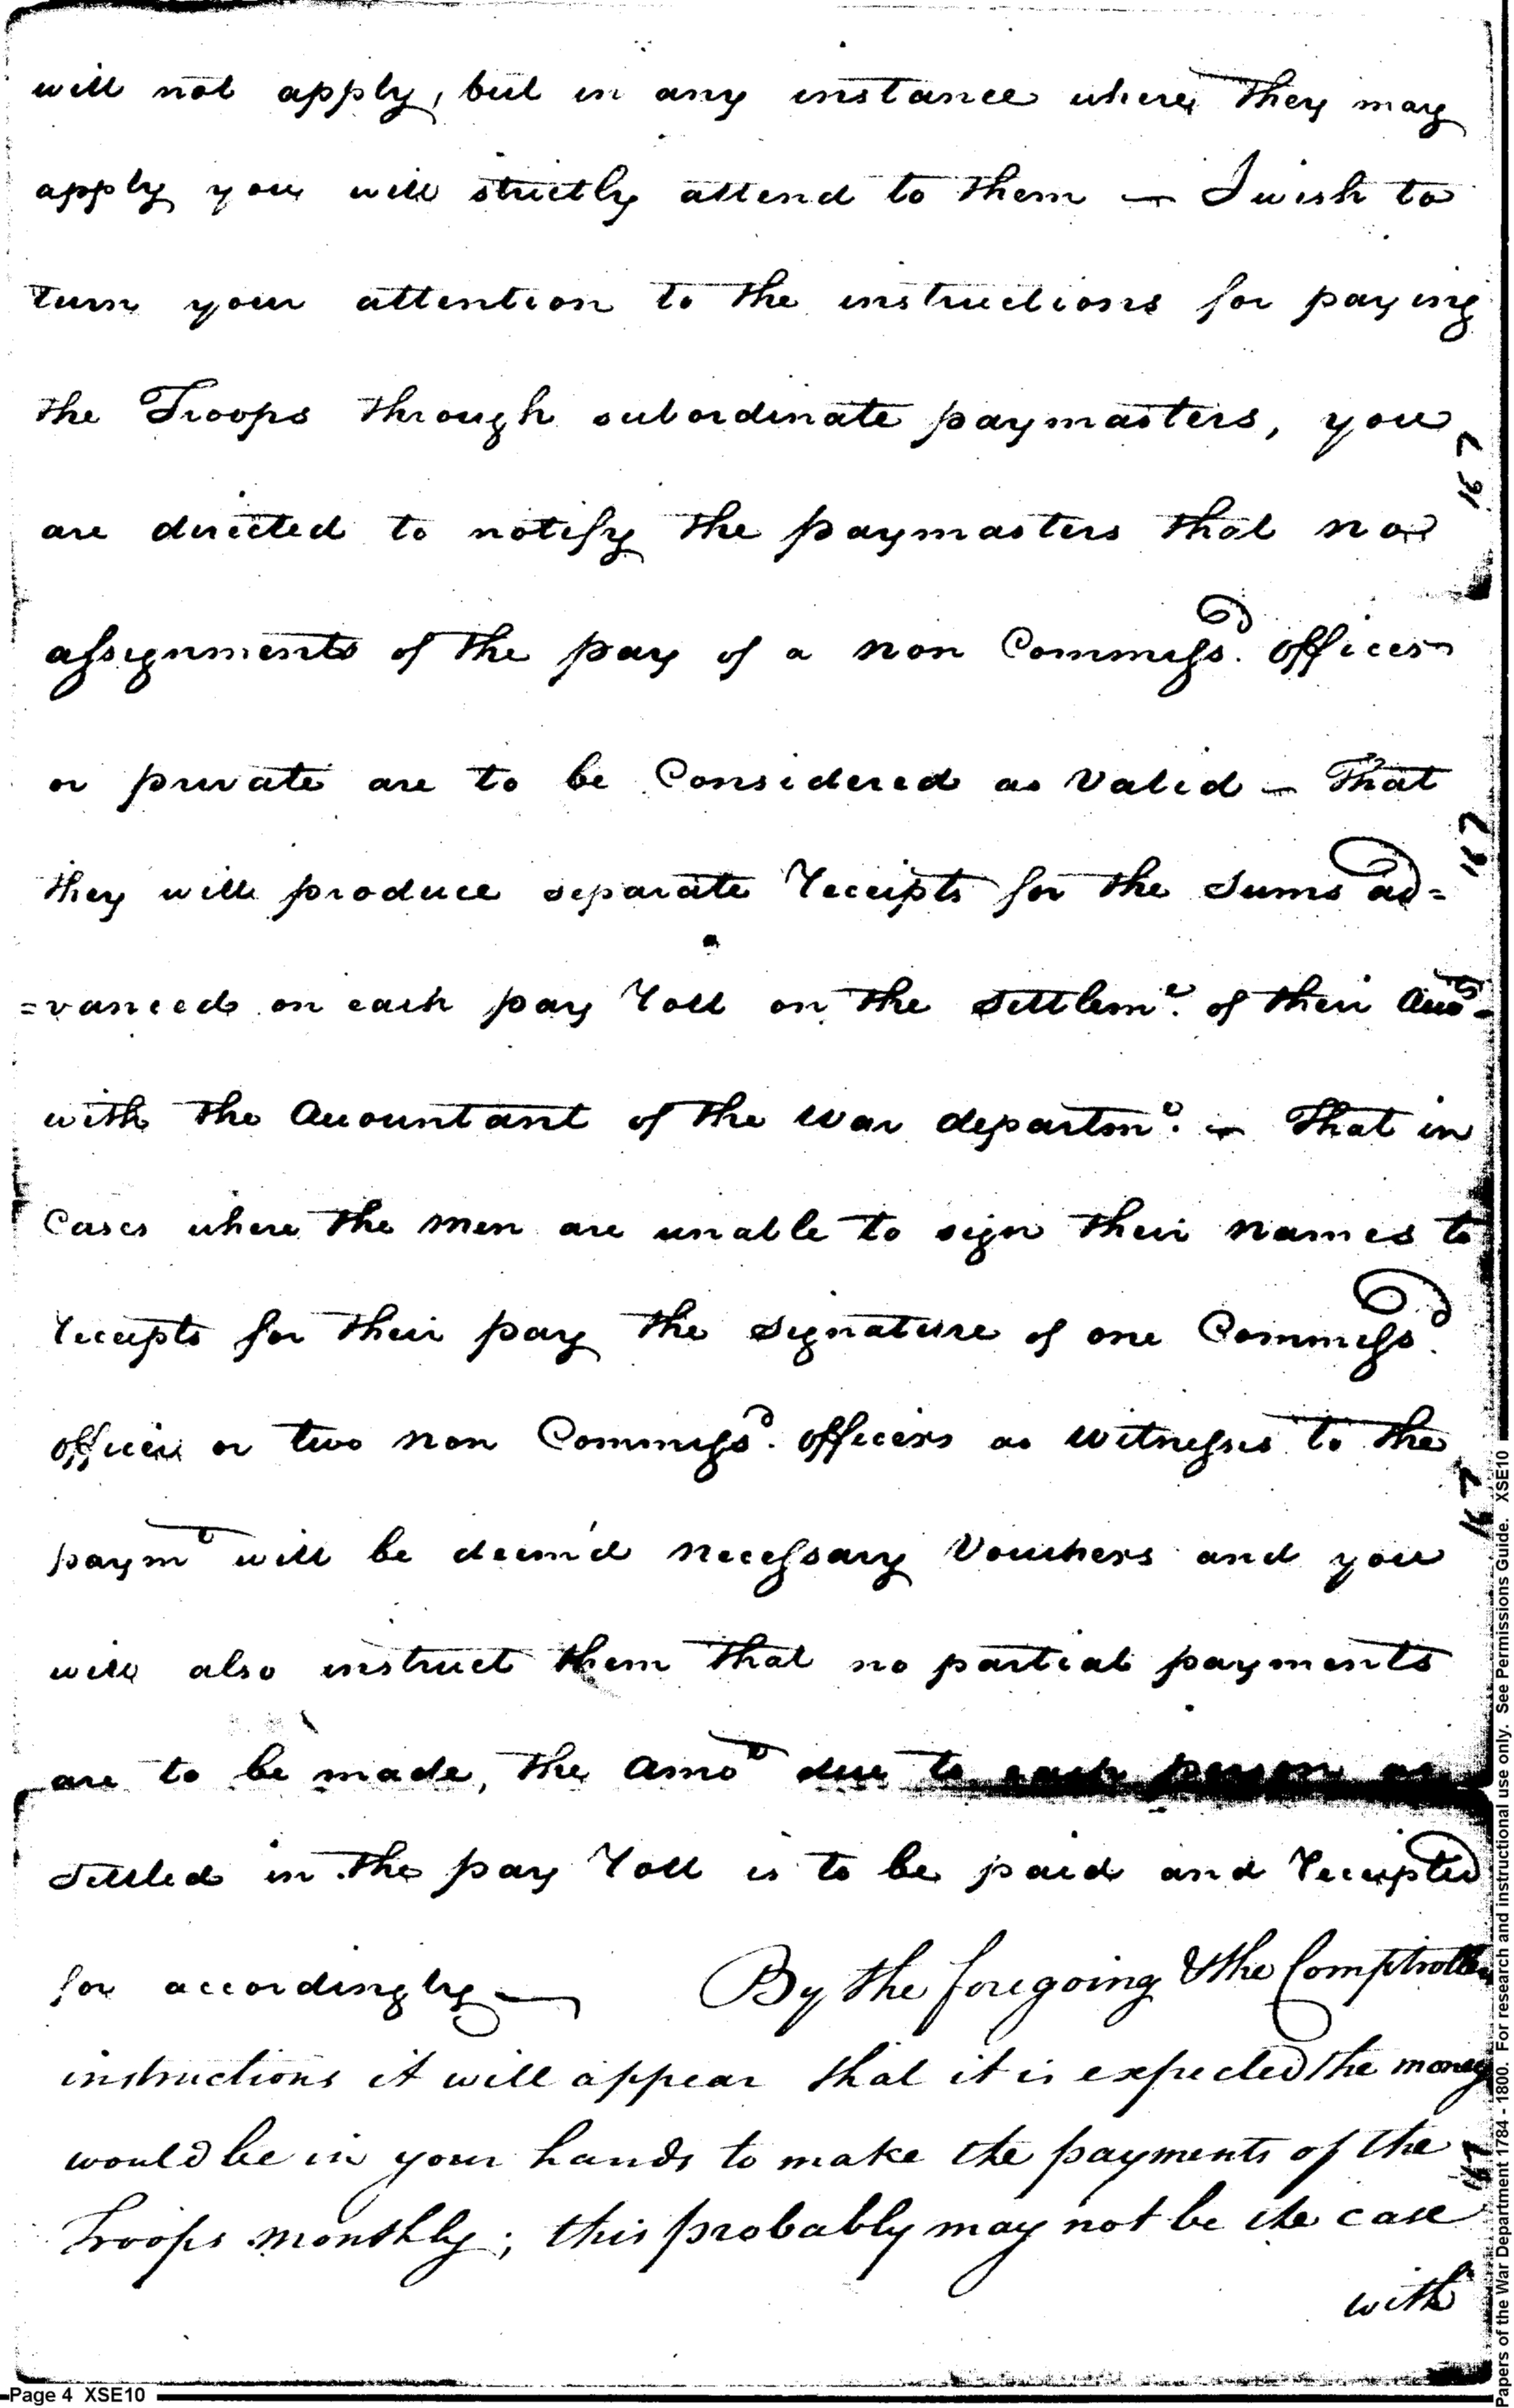 will not apply, but in any instance where they may
apply you will strictly attend to them — I wish to
turn your attention to the instructions for paying
the Troops through subordinate paymasters, you
are directed to notify the paymasters that no
assignments of the pay of a non Commissd. officer
or private are to be Considered as Valid — That
they will produce separate receipts for the Sums ad=
=vanced on each pay roll on the Settlemt. of their Accts.
with the Accountant of the War departmt. — That in
Cases where the men are unable to sign their names to
receipts for their pay the Signature of one Commissd.
officer or two non Commissd. officers as witnesses to the
paymt will be deem'd necessary Vouchers and you
will also instruct them that no partial payments
are to be made, the Amot due to each person as
Settled in the pay roll is to be paid and receipted
for accordingly — By the foregoing & the Comptroller
instructions it will appear that it is expected the money
would be in your hands to make the payments of the
Troops monthly; this probably may not be the case
with
167
167
167
167
Page 4 XSE10
Papers of the War Department 1784 - 1800. For research and instructional use only. See Permissions Guide. XSE10